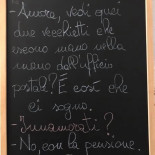 -Amore, vedi quei
due vecchietti che
escono mano nella
mano dall'ufficio
postale? È così che
ci sogno.
-Innamorati?
-No, con la pensione.